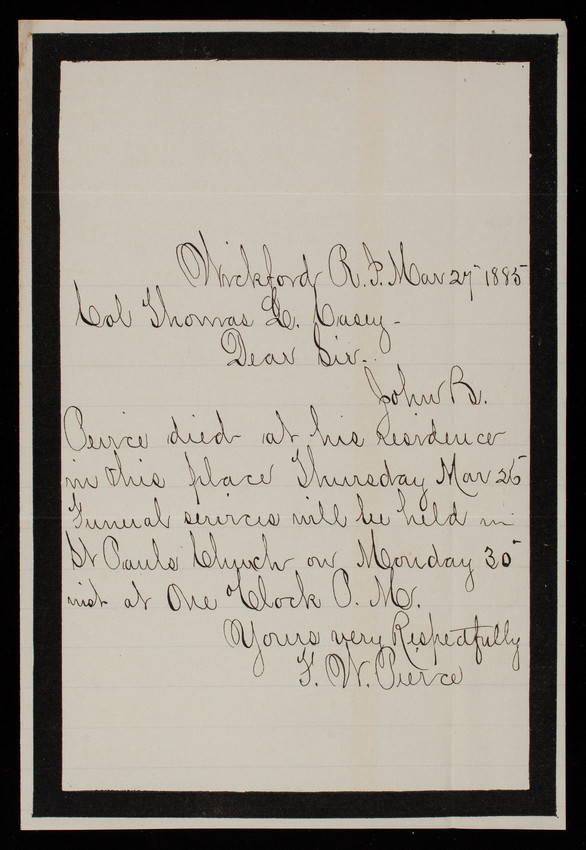 Wickford R.I. Mar 27 1885
Col Thomas L. Casey-
Dear Sir-
John B.
Peirce died at his residence
in this place Thursday Mar 26
Funeral services will be held in
St Pauls Church on Monday 30
inst at One O'Clock P. M.
Yours very Respectfully
T. W. Pierce